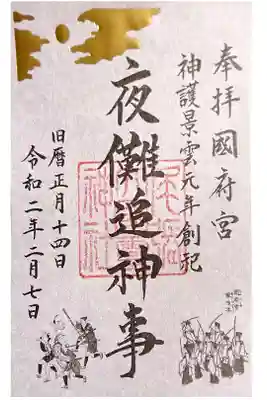 奉拝國府宮
神護景雲元年創祀
夜儺追神事
旧暦正月十四日
令和二年二月七日